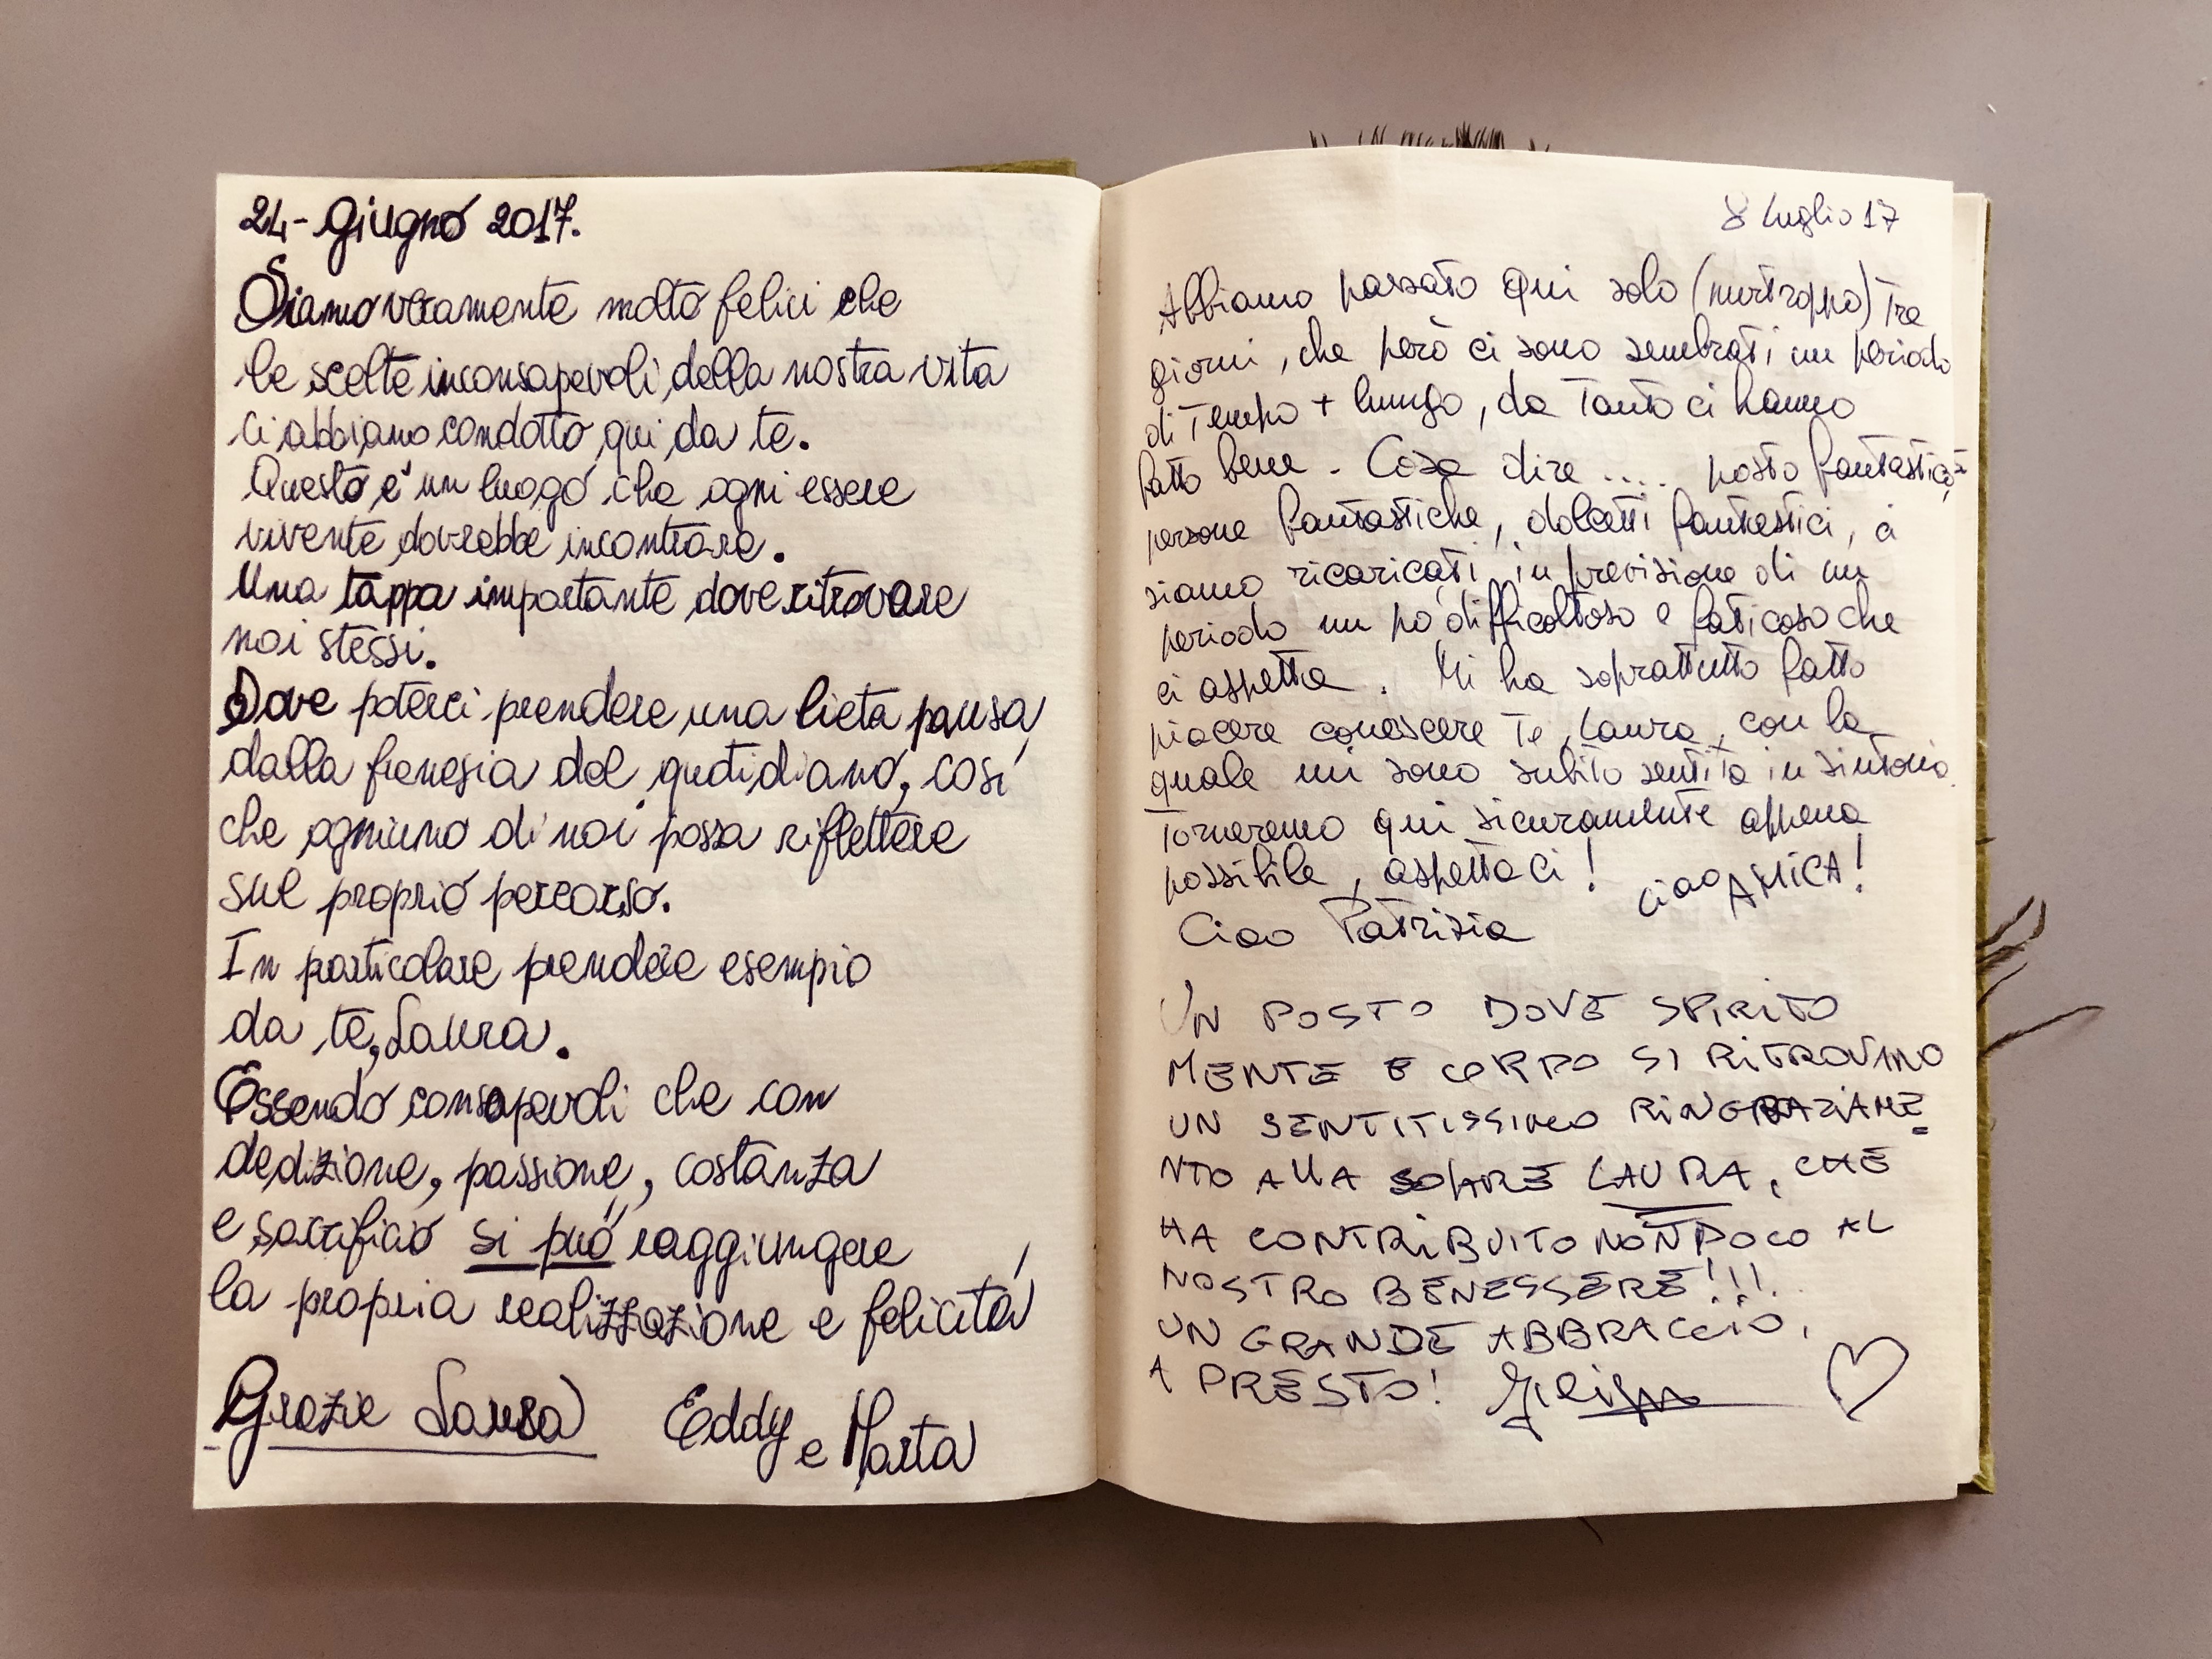 24-Giugno 2017.
Siamo veramente molto felici che
le scelte inconsapevoli della nostra vita
ci abbiano condotto qui da te.
Questo e' un luogo che ogni essere
vivente dovrebbe incontrare.
Una tappa importante dove ritrovare
noi stessi.
Dove poterci prendere una lieta pausa
dalla frenesia del quotidiano, così
che ogniuno di noi possa riflettere
sul proprio percorso.
In particolare prendere esempio
da te, Laura.
Essendo consapevoli che con
dedizione, passione, costanza
e sacrificio si può raggiungere
la propria realizzazione e felicità
Grazie Laura Eddy e Marta
8 Luglio 17
Abbiamo passato qui solo (purtroppo) tre
giorni, che però ci sono sembrati un periodo
di tempo + lungo, da tanto ci hanno
fatto bene. Cosa dire .... posto fantastico,
persone fantastiche, dolcetti fantastici, ci
siamo ricaricati in previsione di un
periodo un po' difficoltoso e faticoso che
ci aspetta. Mi ha soprattutto fatto
piacere conoscere te, Laura, con la
quale mi sono subito sentita in sintonia.
Torneremo qui sicuramente appena
possibile, aspettaci! Ciao AMICA!
Ciao Patrizia
UN POSTO DOVE SPIRITO
MENTE E CORPO SI RITROVANO
UN SENTITISSIMO RINGRAZIAME-
NTO ALLA SOLARE LAURA, CHE
HA CONTRIBUITO NON POCO AL
NOSTRO BENESSERE!!!
UN GRANDE ABBRACCIO,
A PRESTO!